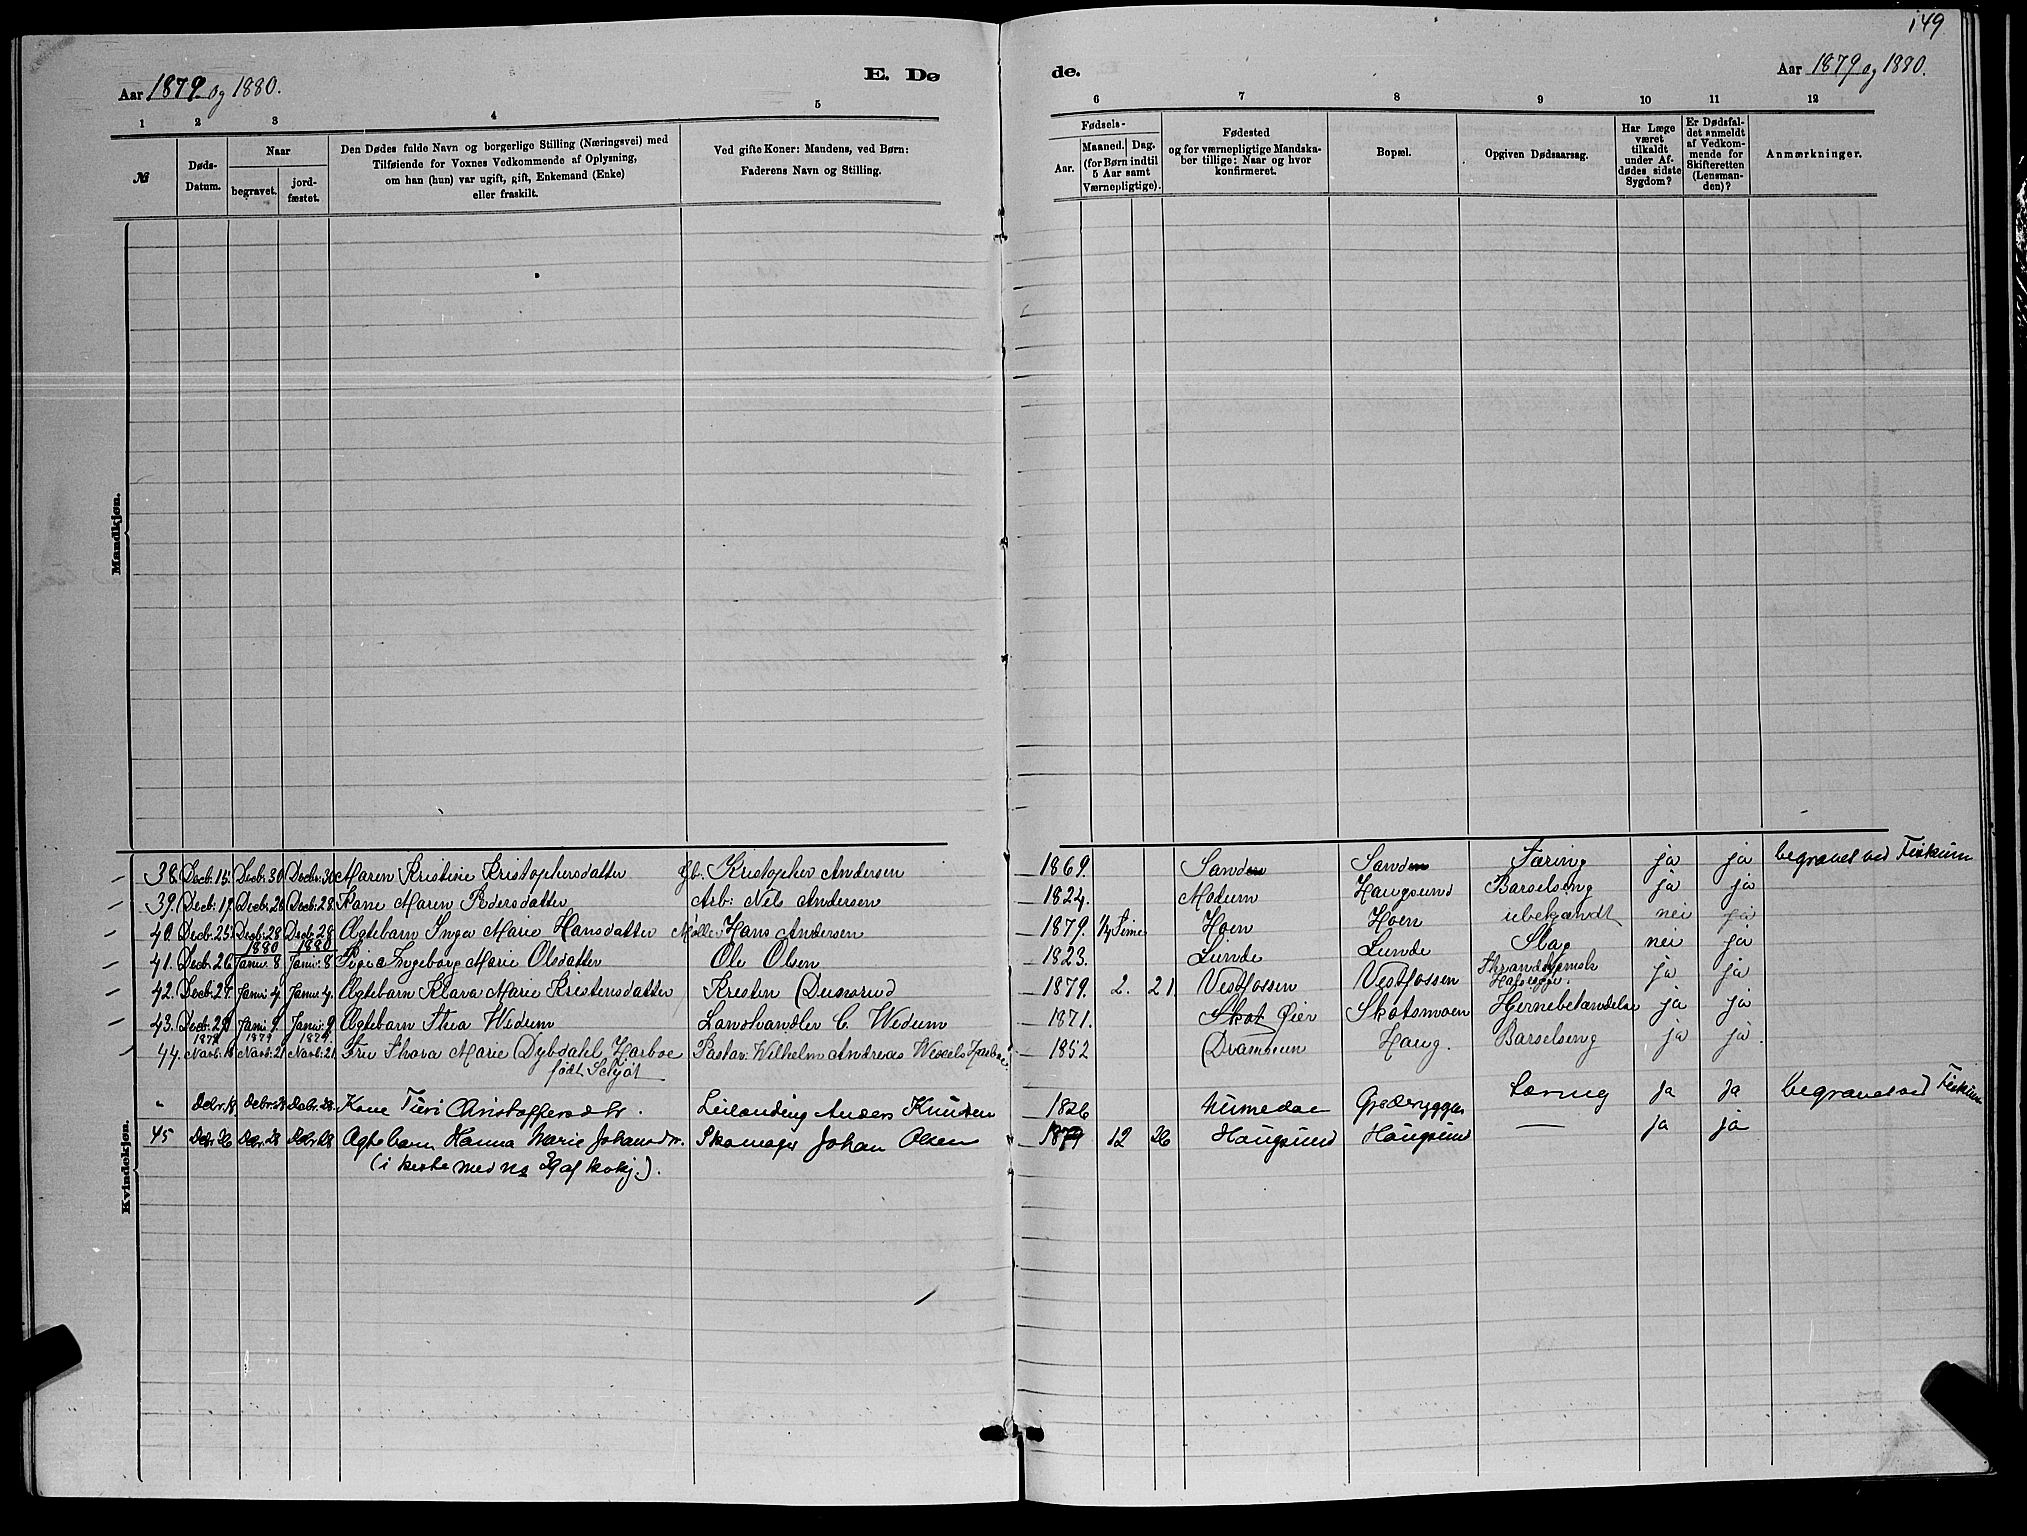 149
Aar 1879 og 1880.
E. Dø
de.
Aar 1879 og 1880.
1 2 3 4 5 6 7 8 9 10 11 12
№
Døds-Datum.
Naar
begravet.
jord-fæstet.
Den Dødes fulde Navn og borgerlige Stilling (Næringsvei) med
Tilføiende for Voxnes Vedkommende af Oplysning,
om han (hun) var ugift, gift, Enkemand (Enke)
eller fraskilt.
Ved gifte Koner: Mandens, ved Børn:
Faderens Navn og Stilling.
Fødsels-
Aar.
Maaned. Dag.
(for Børn indtil
5 Aar samt
Værnepligtige).
Fødested
og for værnepligtige Mandska-
ber tillige: Naar og hvor
konfirmeret.
Bopæl.
Opgiven Dødsaarsag.
Har Læge
været
tilkaldt
under Af-
dødes sidste
Sygdom?
Er Dødsfal-
det anmeldt
af Vedkom-
mende for
Skifteretten
(Lensman-
den)?
Anmærkninger.
Mandkjøn.
Kvindekjøn.
38. Decb. 15 Decb. 30 Decbr. 30 Maren Kristine Kristophersdatter Gbr. Kristopher Andersen 1869. Sanden Sanden Tæring ja ja begravet ved Fiskum
39. Decb. 19 Decbr. 28 Decbr. 28 Kone Maren Pedersdatter Arb: Nels Andersen 1824. Modum Haugsund Barselseng ja ja
40. Decb. 25 Decb. 28 Decb. 28 Ægtebarn Inga Marie Hansdatter Møller Hans Andersen 1879. ½ Time Hoen Hoen ubekjendt nei ja
1880 1880
41. Decb. 26 Janu. 8 Janu. 8 Pige Ingeborg Marie Olsdatter Ole Olsen 1823. Lunde Lunde Slag nei ja
42. Decb. 27 Janu 4 Janu. 4. Ægtebarn Klara Marie Kristensdatter Kresten Dunserud 1879. 2. 21. Vestfossen Vestfossen ja ja
43. Decb. 29 Janu 9 Janu. 9 Ægtebarn Thea Wedum Landhandler C. Wedum 1871. Skot Øier Skotsmoen Hjernebetændelse ja ja
1879 1879 1879.
44. Novb. 18 Novb. 21 Novb. 21 Fru Thora Marie Dybdahl Harboe Pastor Wilhelm Andreas Wexels Harboe 1852 Drammen Haug. Barselseng ja ja.
født Schjøt
" Debr. 18 Debr. 28 Debr. 28. Kone Turi Christoffersdtr. Leilænding Anders Knudsen 1826 Numedal Tæring Ja Ja begravet ved Fiskum
45 Debr 26 Debr. 28 Debr 28 Agtebarn Hanna Marie Johansdr. Skomager Johan Olsen 1879 12 26 Haugsund Haugsund — ja ja
(i kiste med No